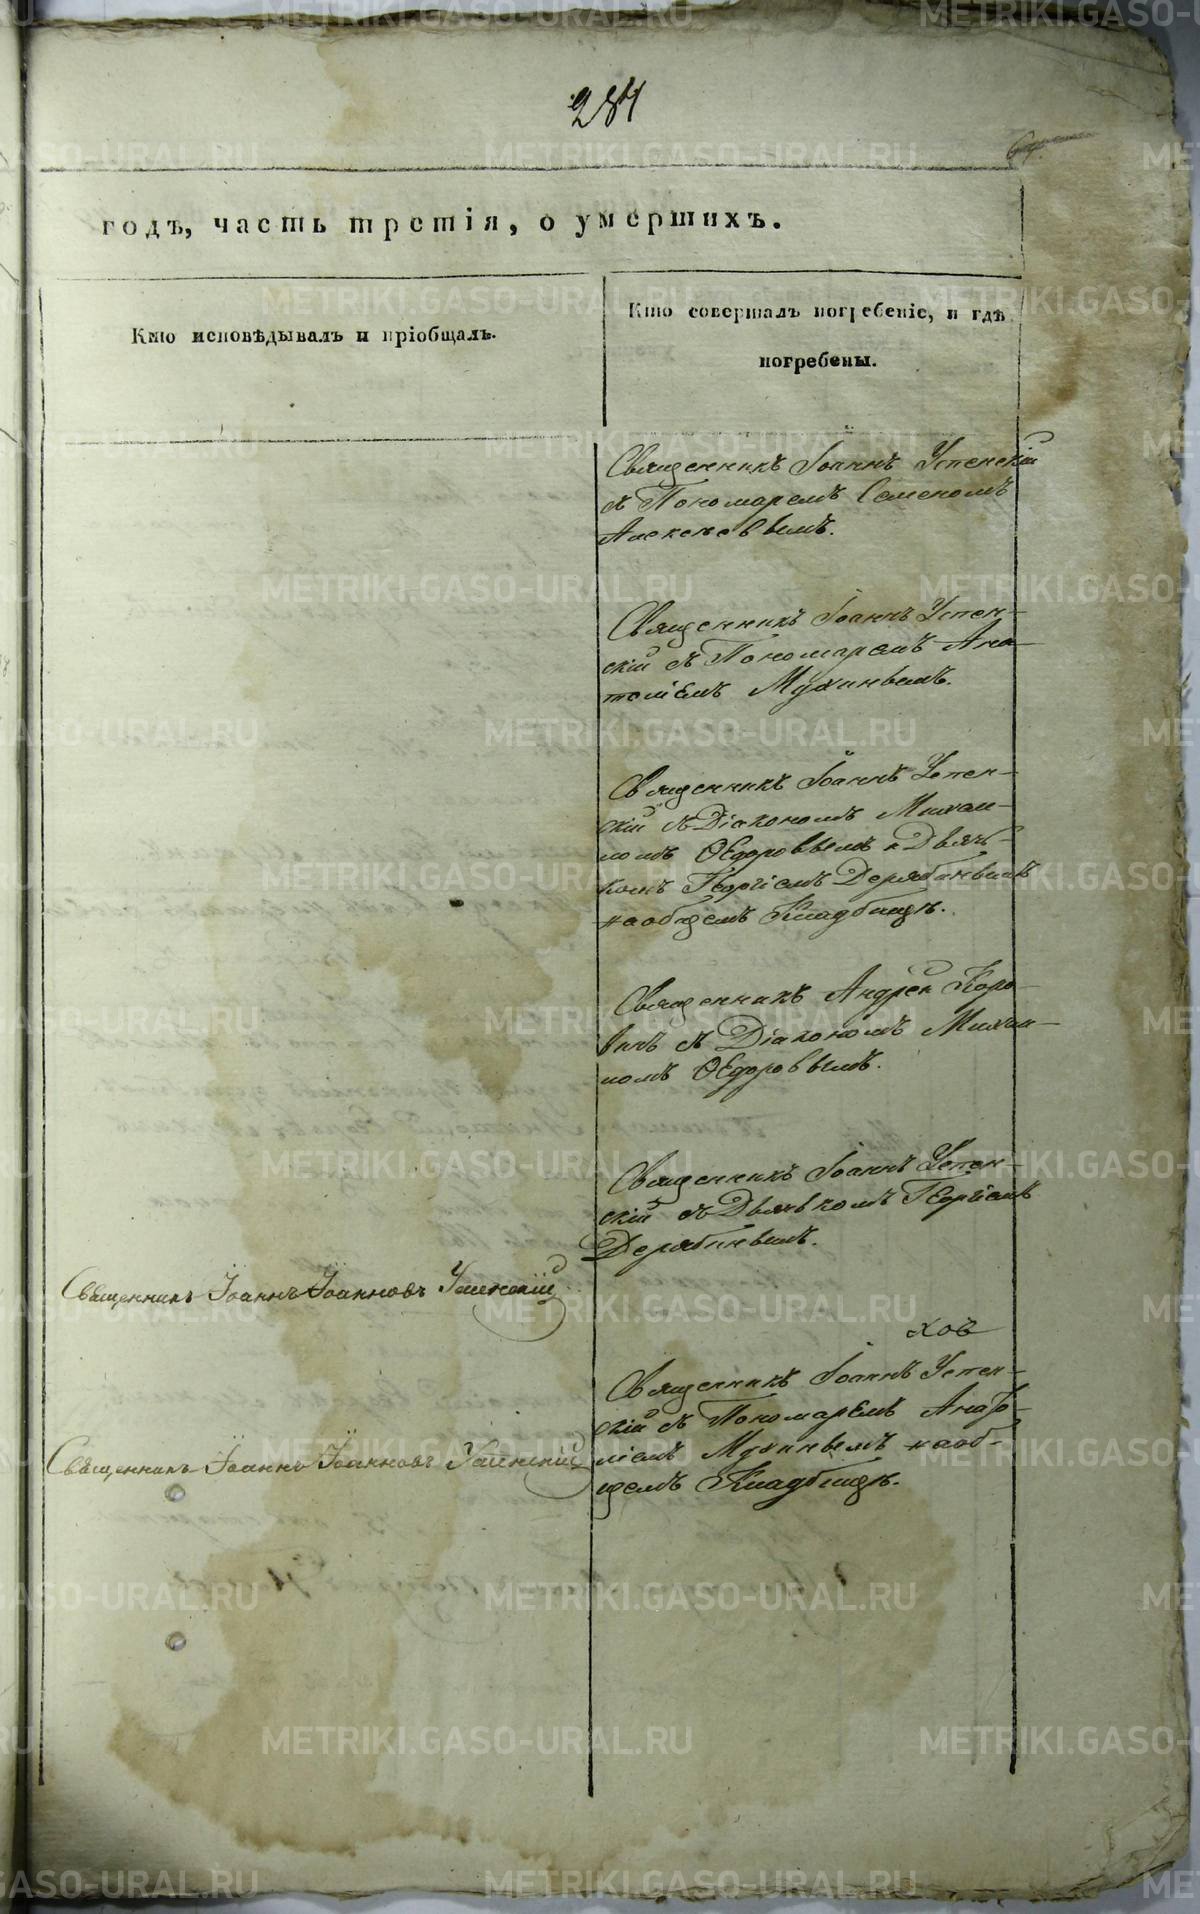 284
64.
годъ, часть третія, о умершихъ.
Кто исповѣдывалъ и пріобщалъ.
Кто совершалъ погребеніе, и гдѣ
погребены.
Священникъ Іоаннъ Успенскій
съ Пономаремъ Семеномъ
Алексѣевымъ.
Священникъ Іоаннъ Успен-
скій съ Пономаремъ Ана-
толіемъ Мухинымъ.
Священникъ Іоаннъ Успен-
скій съ Діакономъ Михаи-
ломъ Ѳедоровымъ и Дьяч-
комъ Георгіемъ Дерябинымъ
на общемъ Кладбищѣ.
Священникъ Андрей Коро-
винъ съ Діакономъ Михаи-
ломъ Ѳедоровымъ.
Священникъ Іоаннъ Успен-
скій съ Дьячкомъ Георгіемъ
Дерябинымъ.
Священникъ Іоаннъ Іоанновъ Успенскій
Священникъ Іоаннъ Успен-
скій съ Пономаремъ Анато-
ліемъ Мухинымъ на об-
щемъ Кладбищѣ.
Священникъ Іоаннъ Іоанновъ Успенскій
METRIKI.GASO-URAL.RU